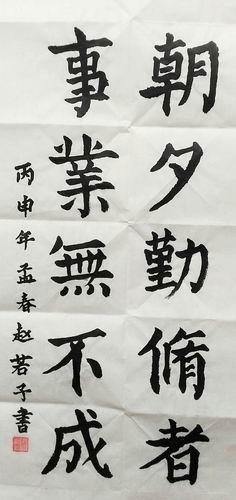 朝夕勤脩者
事業無不成
丙申年孟春赵若子書